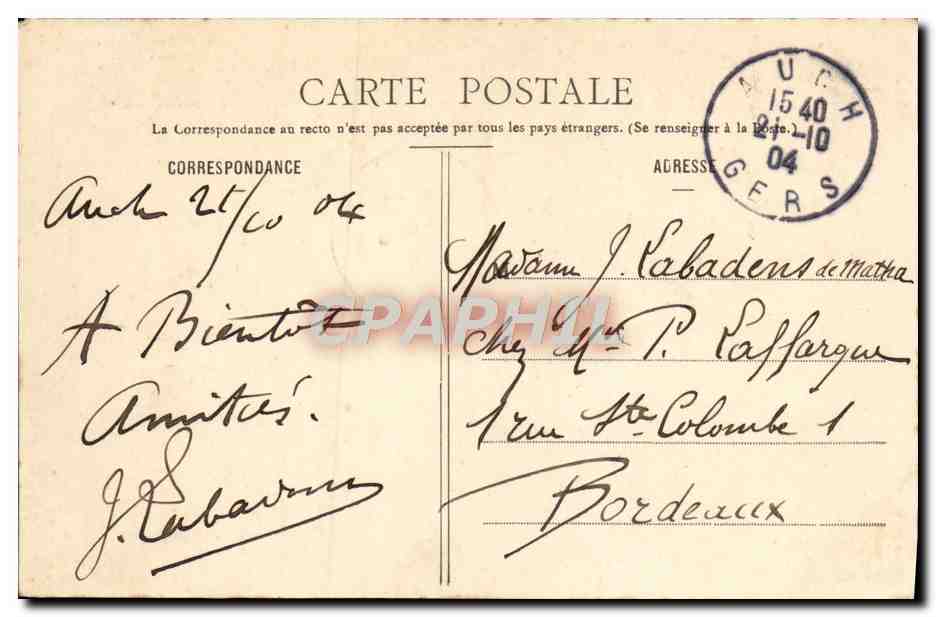 CARTE POSTALE
La Correspondance au recto n'est pas acceptée par tous les pays étrangers. (Se renseigner à la Poste.)
CORRESPONDANCE
Auch 21/10 04
A Bientôt
Amitiés.
J. Labadens
ADRESSE
AUCH
15 40
21-10
04
GERS
Madame J. Labadens de Matha
chez Mr P. Laffargue
1 rue Ste Colombe 1
Bordeaux
CPAPHIL